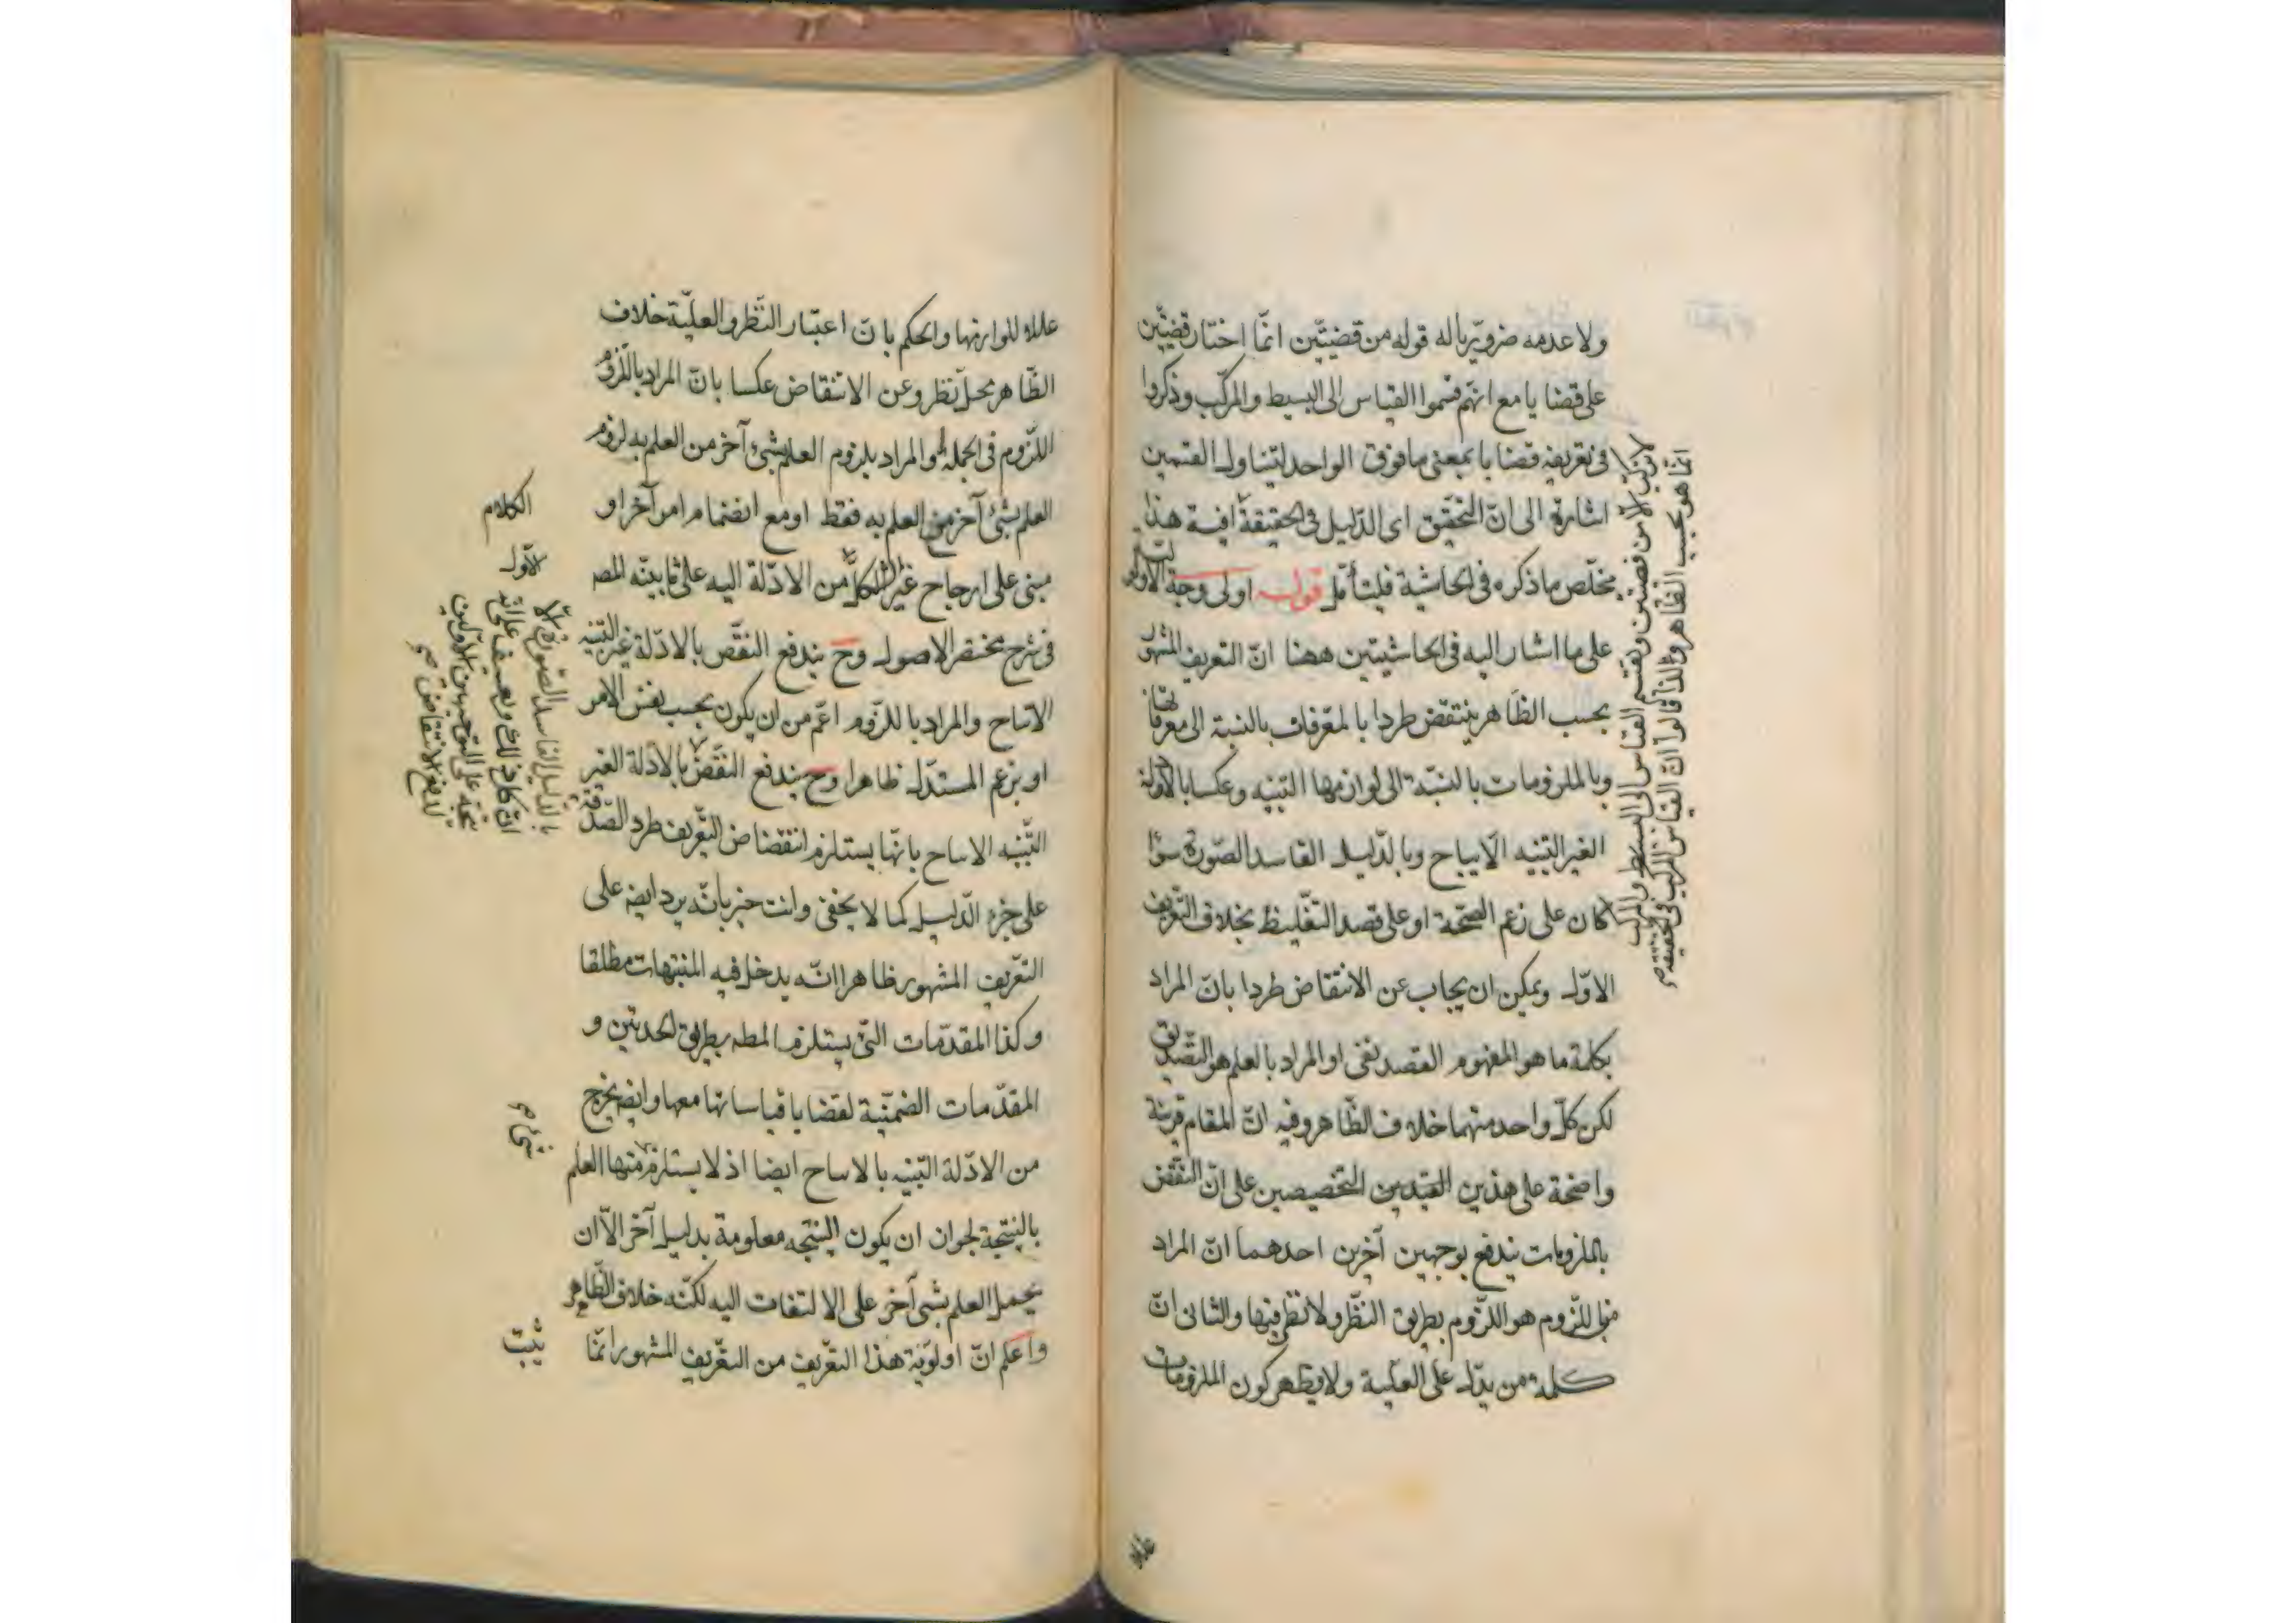 ولا عدمه ضروريا له قوله من قضيتين انما اختار قضيتين
على قضايا مع انهم قسموا القياس الى البسيط والمركب وذكروا
في تعريفه قضايا بمعنى ما فوق الواحد لتناول القسمين
اشارة الى ان التحقيق اى الدليل في الحقيقة هذا
مخلص ما ذكره في الحاشية فليتأمل قوله اولى وجه الاولوية
على ما اشار اليه في الحاشيتين ههنا ان التعريف المشهور
بحسب الظاهر ينتقض طردا بالمعرفات بالنسبة الى معرفاتها
وبالملزومات بالنسبة الى لوازمها البينه وعكسا بالادلة
الغير البينه الانتاج وبالدليل الفاسد الصورة سواء
كان على زعم الصحة او على قصد التغليظ بخلاف التعريف
الاول ويمكن ان يجاب عن الانتقاض طردا بان المراد
بكلمة ما هو المفهوم التصديقى او المراد بالعلم هو التصديق
لكن كل واحد منهما خلاف الظاهر وفيه ان المقام قرينة
واضحة على هذين القيدين التخصيصين على ان النقض
بالملزومات يندفع بوجهين آخرين احدهما ان المراد
من اللزوم هو اللزوم بطريق النظر ولا نظر فيها والثانى ان
كلمة من يدل على العلية ولا يظهر كون الملزومات
لا يتركب الا من قضيتين وتقسيم القياس الى البسيط والمركب
انما هو بحسب الظاهر ولذا قالوا ان القياس المركب في الحقيقه
علله للوازمها والحكم بان اعتبار النظر والعلية خلاف
الظاهر محل نظر وعن الانتقاض عكسا بان المراد باللزوم
اللزوم في الجملة والمراد بلزوم العلم بشئ آخر من العلم به لزوم
العلم بشئ آخر من العلم به فقط او مع انضمام امر آخر او
مبنى على ارجاح غير الشكل من الادلة اليه على ما بينه المصـ
في شرح مختصر الاصول وح يندفع النقض بالادلة غير البينه
الانتاج والمراد باللزوم اعم من ان يكون بحسب نفس الامر
او بزعم المستدل ظاهرا وح يندفع النقض بالادلة الغير
البينه الانتاج بانها يستلزم انتقاض التعريف طردا لصدقه
على جزء الدليل كما لا يخفى وانت خبير بانه يرد ايضا على
التعريف المشهور ظاهرا انه يدخل فيه المنبهات مطلقا
وكذا المقدمات التى يستلزم المطه بطريق الحدس و
المقدمات الضمنية لقضايا قياساتها معها وايضا يخرج
من الادلة البينه بالانتاج ايضا اذ لا يستلزم منها العلم
بالنتيجة لجواز ان يكون النتيجه معلومة بدليل آخر الا ان
يحمل العلم بشى آخر على الالتفات اليه لكنه خلاف الظاهر
واعلم ان اولوية هذا التعريف من التعريف المشهور انما
الكلام
الاول
بالدليل الفاسد الصورة الا
ان كان ذلك
يتجه على التوجيهين الاولين
لدفع الانتقاض
شئ
يثبت